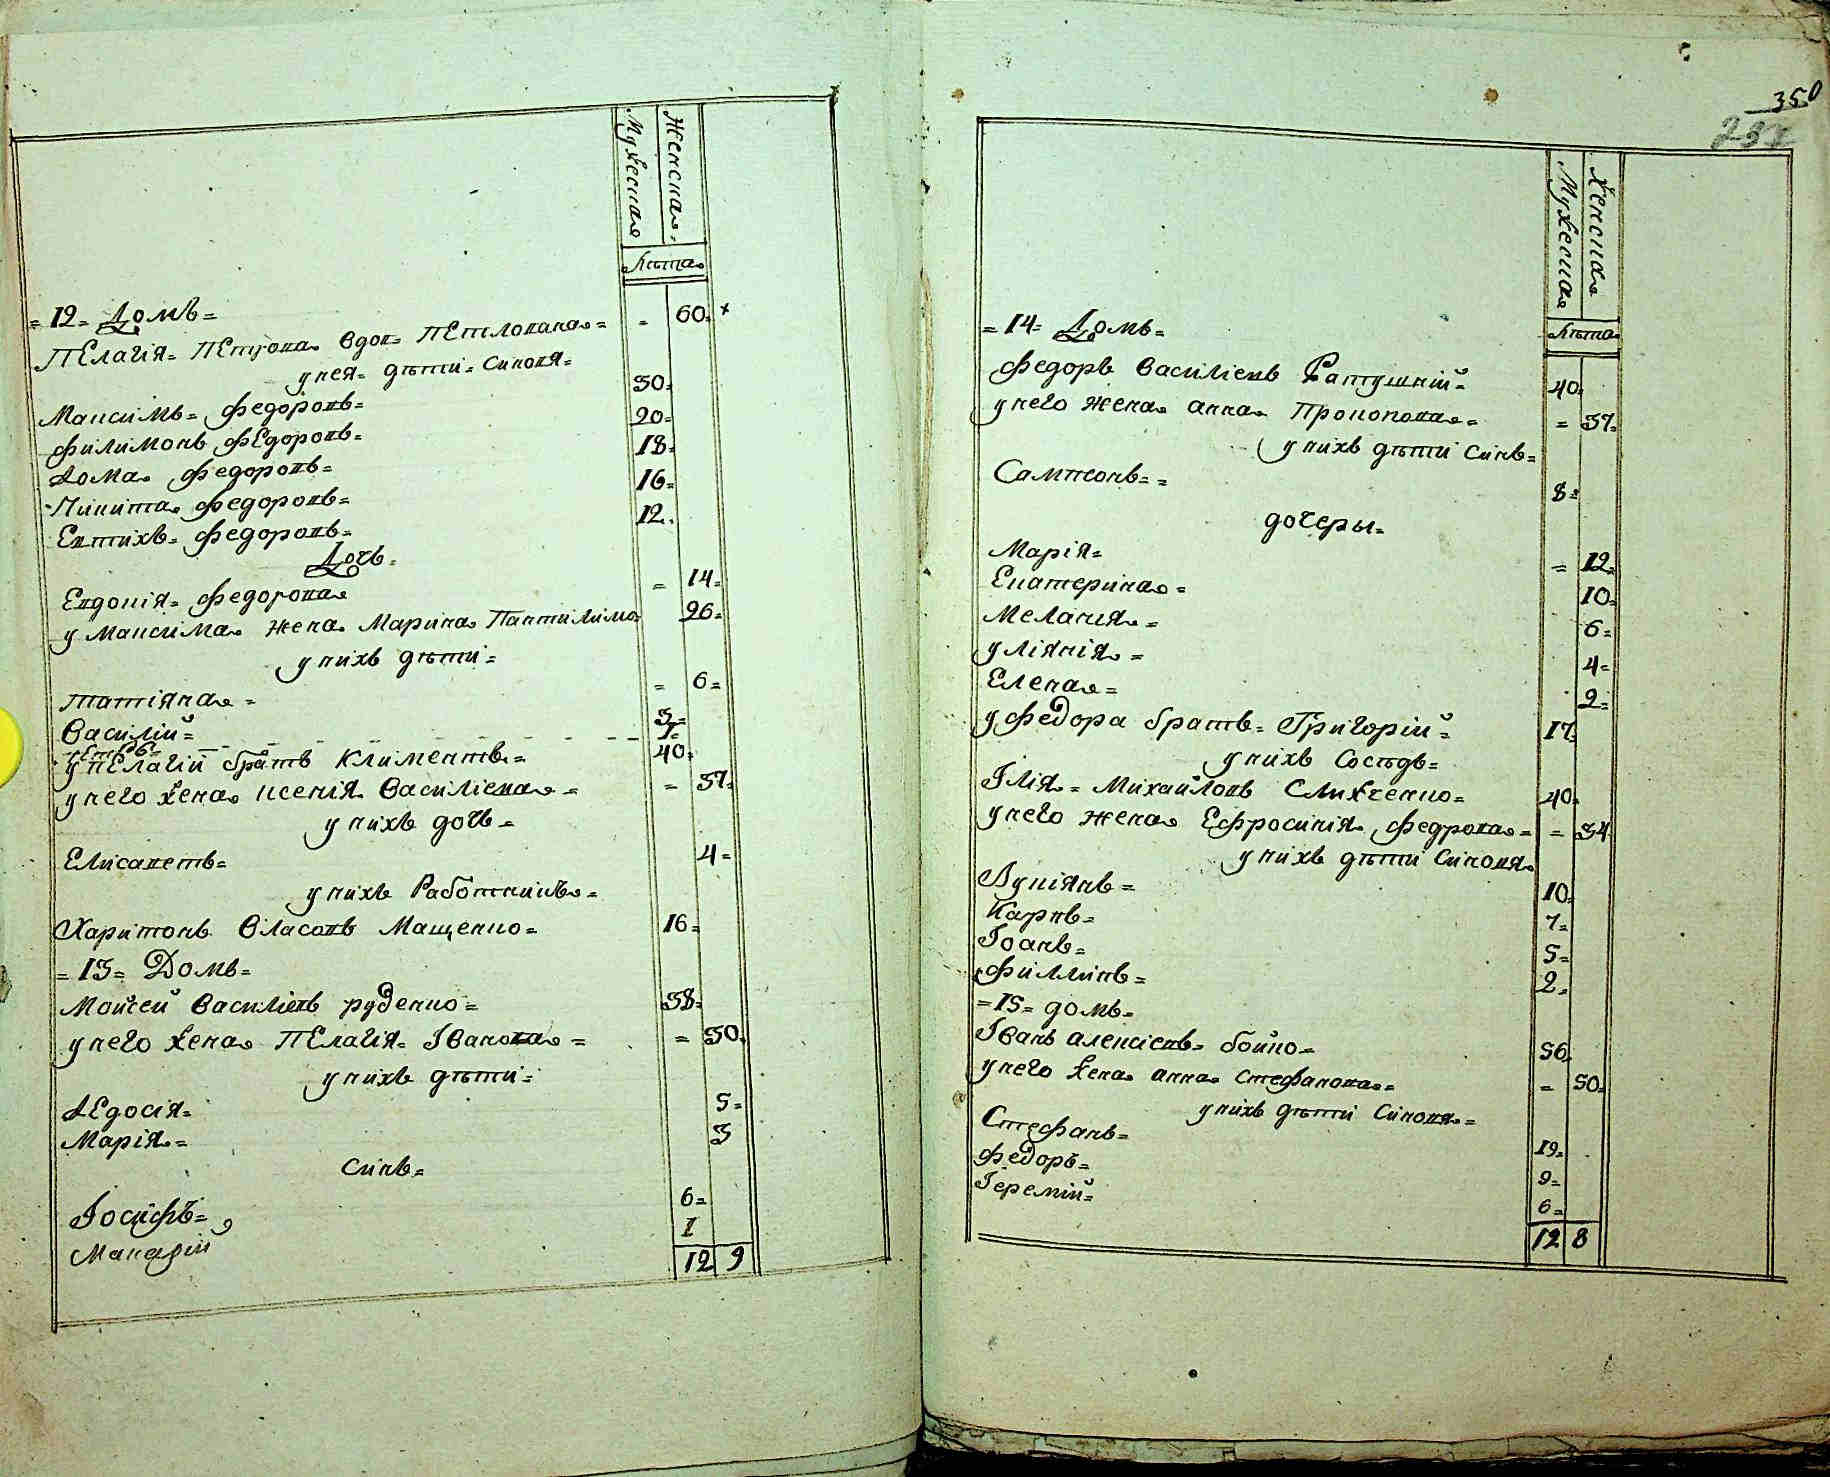 Мужеская
Женская
Лѣта
= 12 = Домъ =
Пелагія = Петрова вдов = Петлована = = 60 =
у нея = дѣти = синовя =
Максимъ = Федоровъ = 30 =
Филимонъ Федоровъ = 20 =
Ѳома Федоровъ = 18 =
Никита Федоровъ = 16 =
Евтихъ = Федоровъ = 12
Дочь =
Евдокія = Федорова = 14 =
у Максима жена Марина Пантилимо 26 =
у нихъ дѣти =
Татіяна = = 6 =
Василій = 3 =
Петръ = 1 =
у Пелагіи братъ Климентъ = 40 =
у него жена Ксенія Василіева = = 37 =
у нихъ дочь =
Елисаветъ = 4 =
у нихъ Работникъ =
Харитонъ Власовъ Мащенко = 16 =
= 13 = Домъ =
Мойсей Василіевъ Руденко = 38 =
у него жена Пелагія Іванова = = 30 =
у нихъ дѣти =
Ѳедосія = 5 =
Марія = 3
Синъ =
Іосифъ = 6 =
Макарій 1
12 9
350
237
Мужеская
Женская
Лѣта
= 14 = Домъ =
Федоръ Василіевъ Ратушній = 40 =
у него жена Анна Прокопова = = 37 =
у нихъ дѣти синъ =
Сампсонъ = = 8 =
дочеры =
Марія = = 12 =
Екатерина = 10 =
Меланія = 6 =
Уліянія = 4 =
Елена = 2 =
у Федора братъ = Григорій = 17
у нихъ Сосѣдъ =
Ілія = Михайловъ Слюжченко = 40 =
у него жена Ефросинія Федрова = = 34
у нихъ дѣти Синовя
Лукіянъ = 10 =
Карпъ = 7 =
Іоанъ = 5 =
Филлипъ = 2 =
= 15 = домъ =
Іванъ Алексіевъ = Бойко = 56
у него жена Анна Стефанова = = 50 =
у нихъ дѣти Синовя =
Стефанъ = 19 =
Федоръ = 9 =
Іеремій = 6 =
12 8